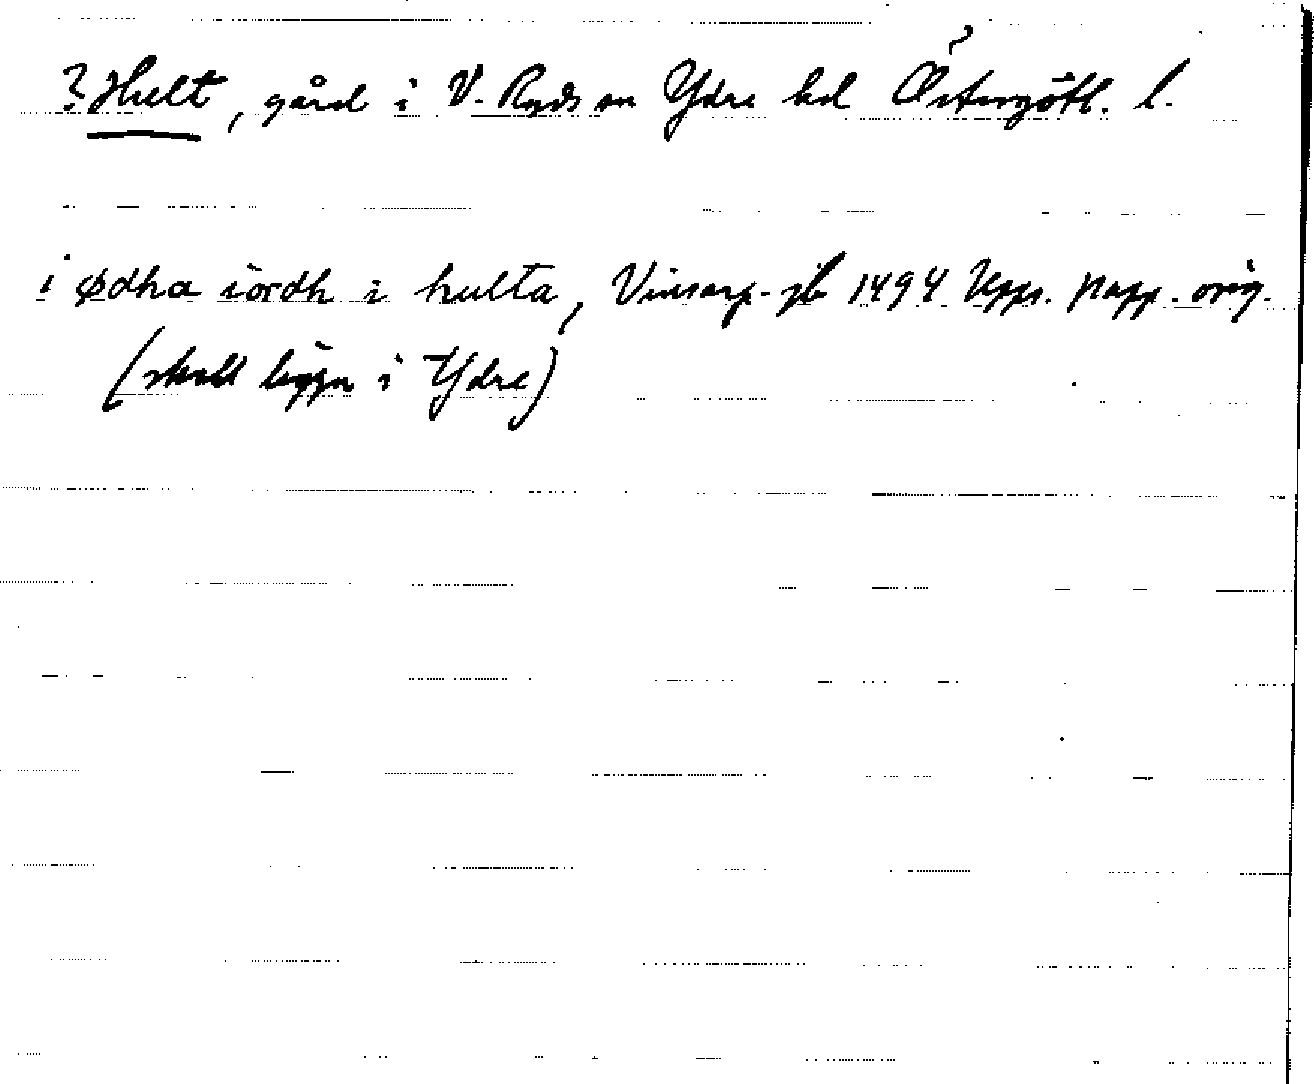 ? Hult, gård i V. Ryds sn Ydre hd Östergötl. l.
i ødha iördh i hulta, Vinsarp. jb 1494 Upps. papp. orig.
(skall ligga i Ydre)